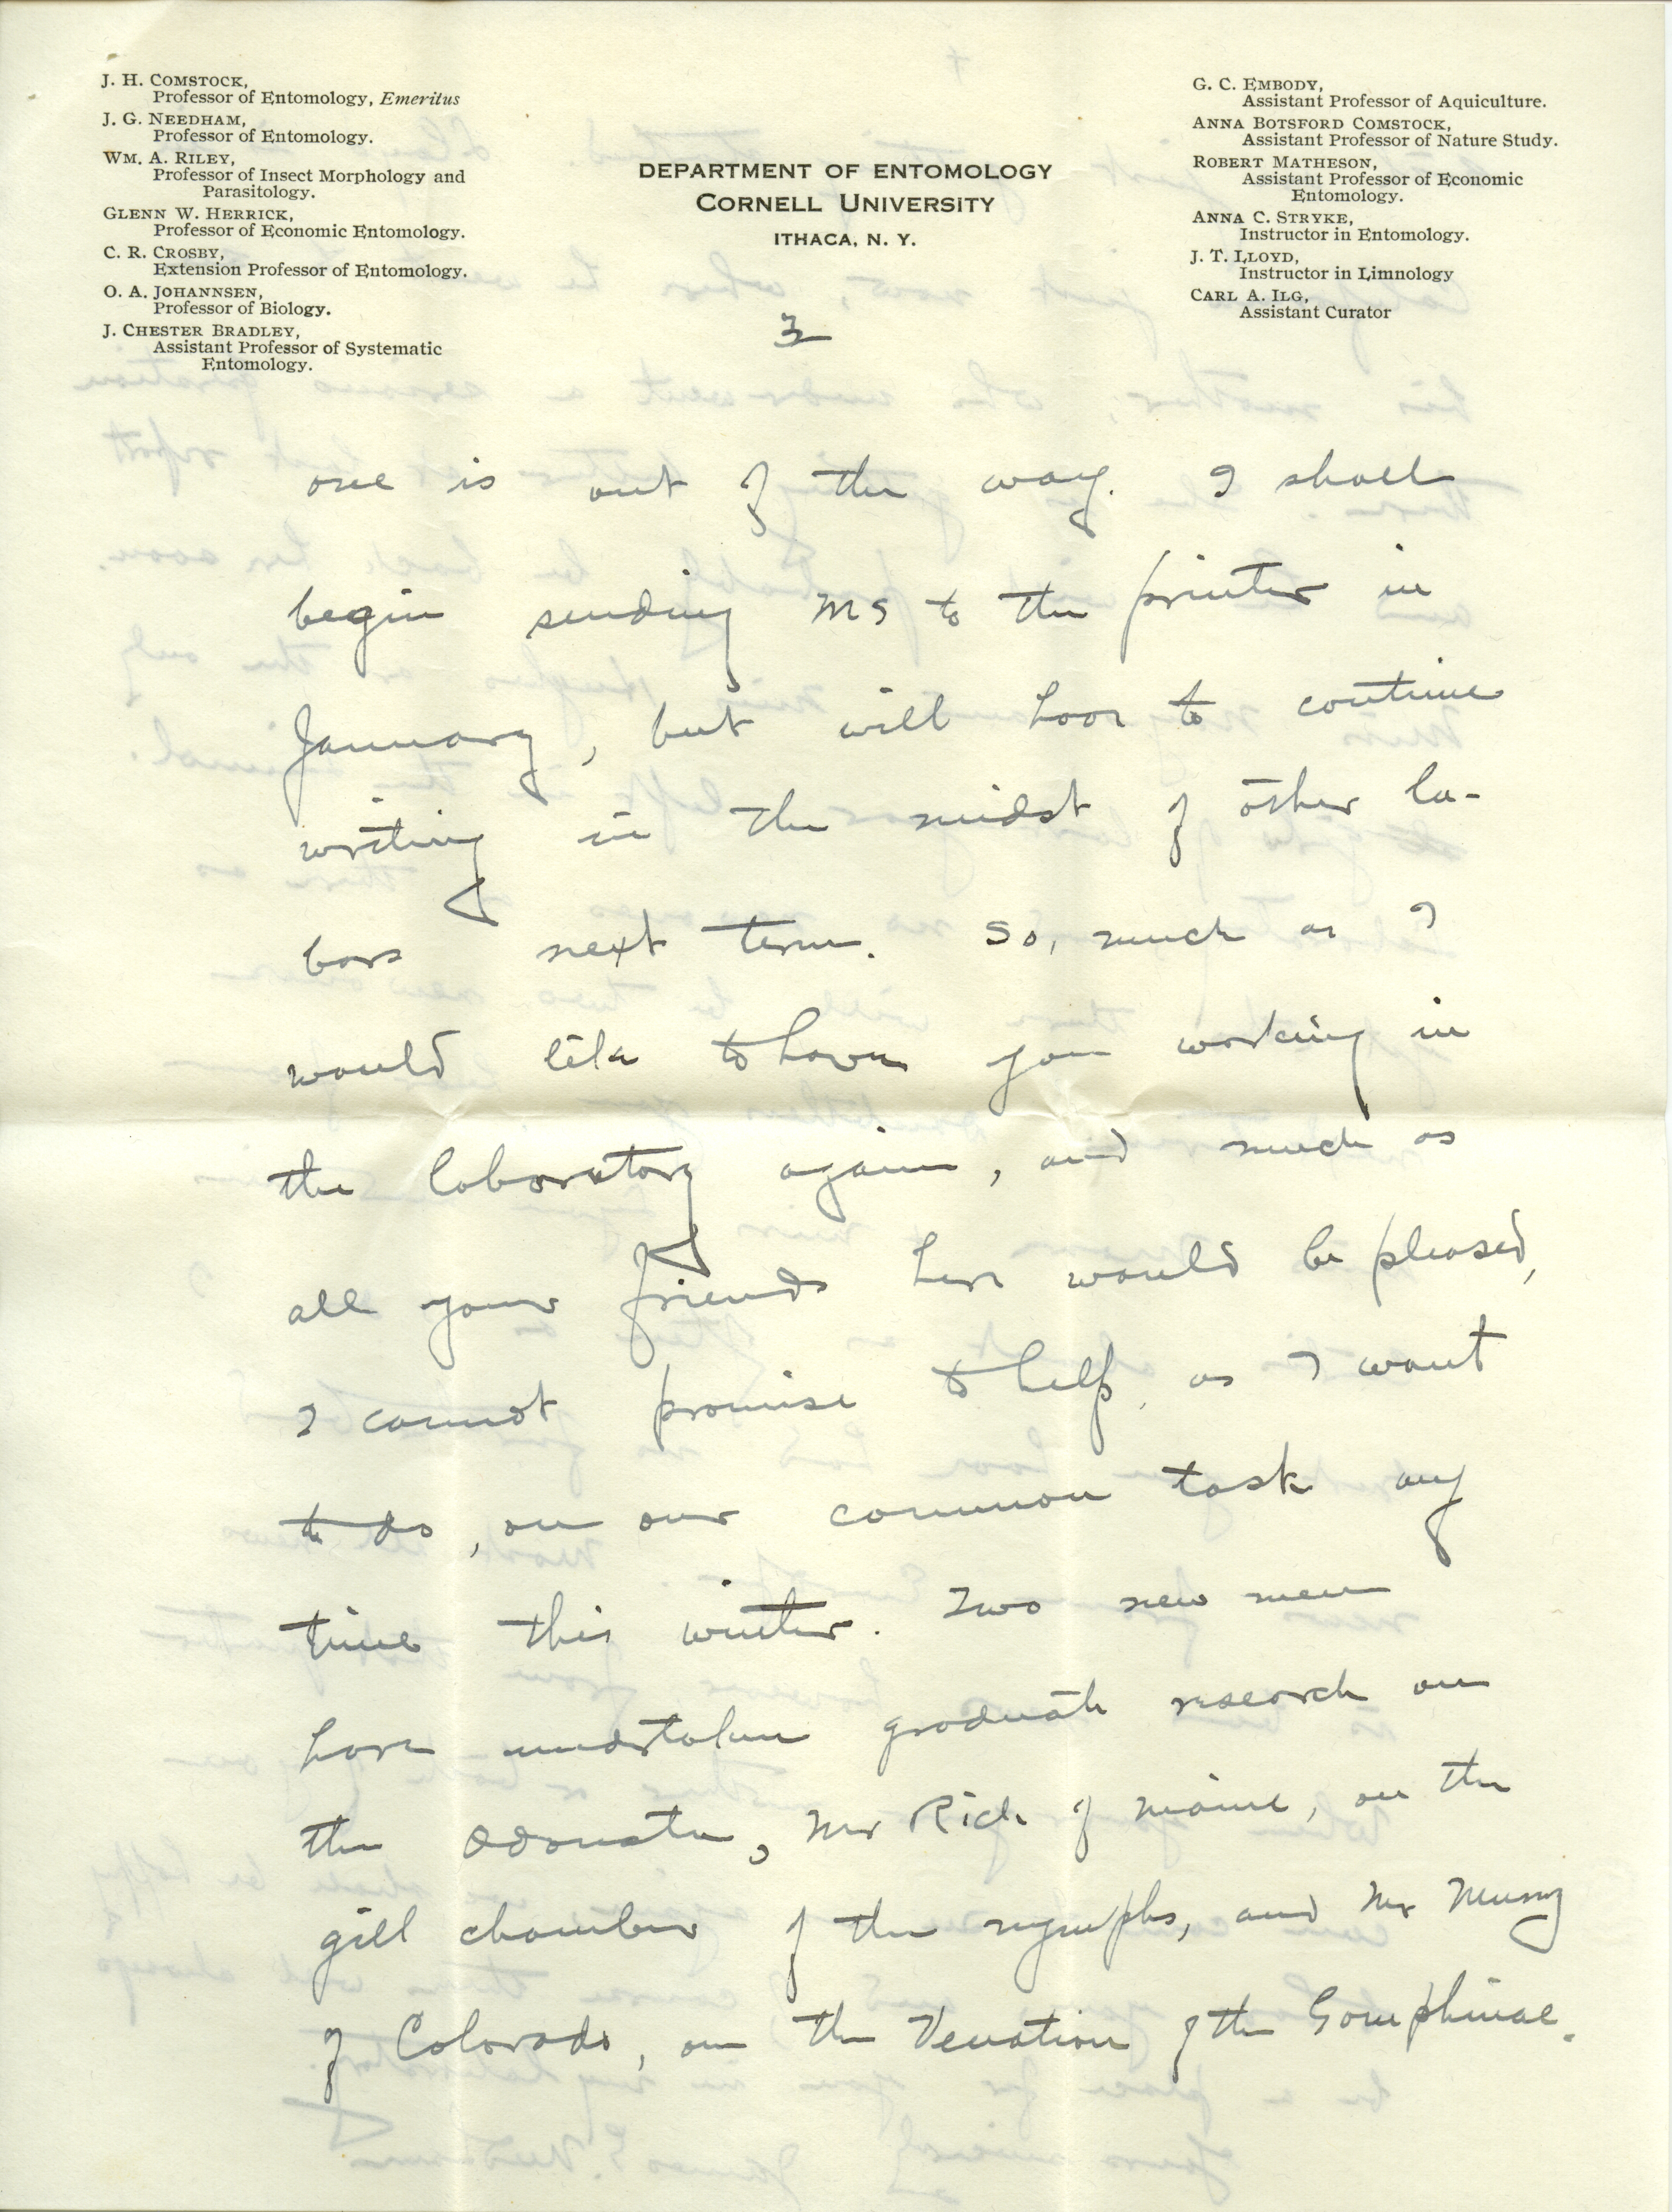 J. H. COMSTOCK,
Professor of Entomology, Emeritus
J. G. NEEDHAM,
Professor of Entomology.
WM. A. RILEY,
Professor of Insect Morphology and
Parasitology.
GLENN W. HERRICK,
Professor of Economic Entomology.
C. R. CROSBY,
Extension Professor of Entomology.
O. A. JOHANNSEN,
Professor of Biology.
J. CHESTER BRADLEY,
Assistant Professor of Systematic
Entomology.
DEPARTMENT OF ENTOMOLOGY
CORNELL UNIVERSITY
ITHACA, N. Y.
G. C. EMBODY,
Assistant Professor of Aquiculture.
ANNA BOTSFORD COMSTOCK,
Assistant Professor of Nature Study.
ROBERT MATHESON,
Assistant Professor of Economic
Entomology.
ANNA C. STRYKE,
Instructor in Entomology.
J. T. LLOYD,
Instructor in Limnology
CARL A. ILG,
Assistant Curator
3
one is out of the way. I shall
begin sending MS to the printer in
January, but will have to continue
writing in the midst of other la-
bors next term. So, much as I
would like to have you working in
the laboratory again, and much as
all your friends here would be pleased,
I cannot promise to help, as I want
to do, on our common task any
time this winter. Two new men
have undertaken graduate research on
the Odonata, Mr Rich of Maine, on the
gill chamber of the nymphs, and Mr
of Colorado, on the Venation of the Gomphinae.